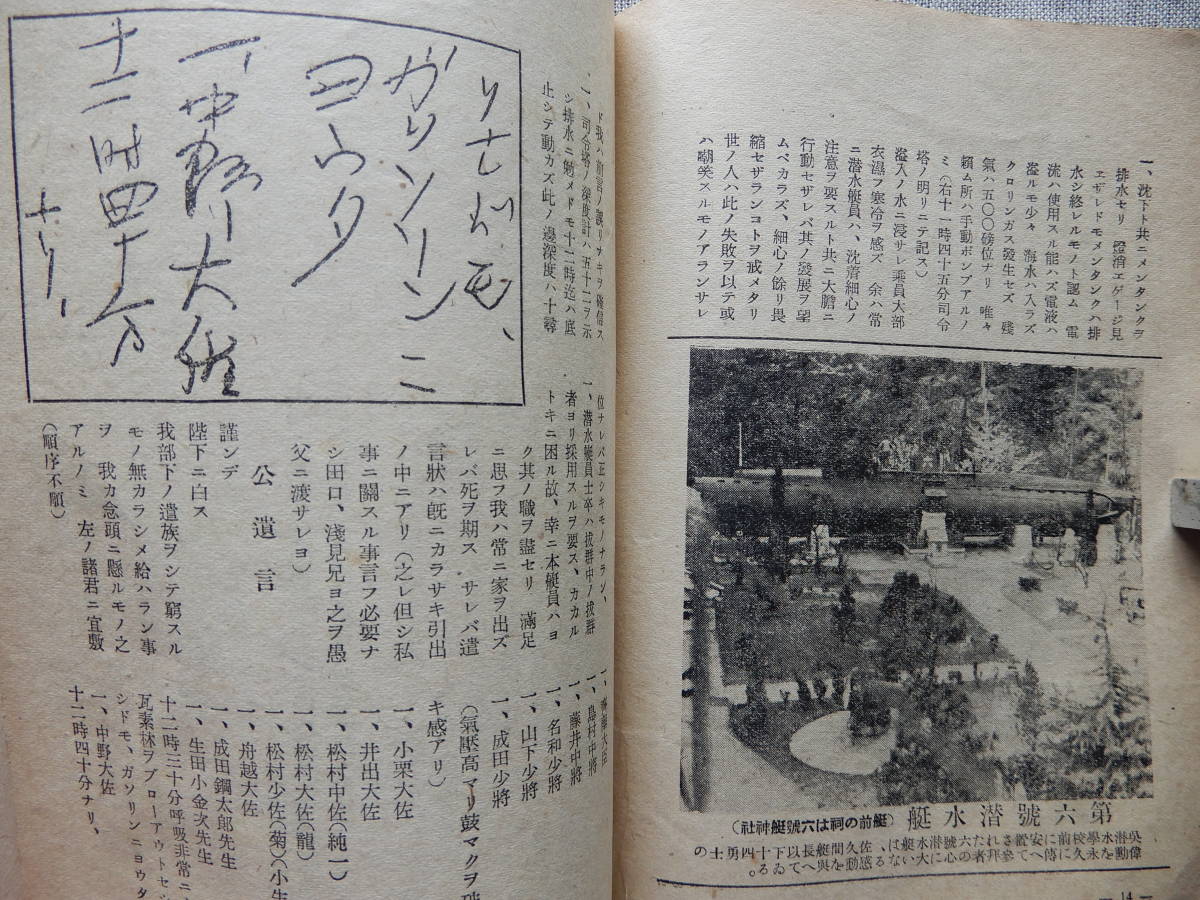 一、沈下ト共ニメンタンクヲ
排水セリ 燈消エゲージ見
エザレドモメンタンクハ排
水シ終レルモノト認ム 電
流ハ使用スル能ハズ電液ハ
溢ルモ少々 海水ハ入ラズ
クロリンガス發生セズ 殘
氣ハ五〇〇磅位ナリ 唯々
賴ム所ハ手動ポンプアルノ
ミ(右十一時四十五分司令
塔ノ明リニテ記ス)
溢入ノ水ニ浸サレ乘員大部
衣濕フ寒冷ヲ感ズ 余ハ常
ニ潜水艇員ハ、沈着細心ノ
注意ヲ要スルト共ニ大膽ニ
行動セザレバ其ノ發展ヲ望
ムベカラズ、細心ノ餘リ畏
縮セザランコトヲ戒メタリ
世ノ人ハ此ノ失敗ヲ以テ或
ハ嘲笑スルモノアランサレ
第六號潜水艇(艇前の祠は六號艇神社)
呉潜水學校前に安置された六號潜水艇は、佐久間艇長以下十四勇士の
偉勳を永久に傳へて參拜者の心に大いなる感動を與へてゐる。
— 14 —
ド我ハ前言ノ誤リナキヲ確信ス
一、司令塔ノ深度計ハ五十二ヲ示
シ排水ニ勉メドモ十二時迄ハ底
止シテ動カズ此ノ邊深度ハ十尋
位ナレバ正シキモノナラン、
一、潜水艇員士卒ハ拔群中ノ拔群
者ヨリ採用スルヲ要ス、カカル
トキニ困ル故、幸ニ本艇員ハヨ
ク其ノ職ヲ盡セリ 滿足
ニ思フ我ハ常ニ家ヲ出ズ
レバ死ヲ期ス サレバ遺
言狀ハ旣ニカラサキ引出
ノ中ニアリ(之レ但シ私
事ニ關スル事言フ必要ナ
シ田口、淺見兄ヨ之ヲ愚
父ニ渡サレヨ)
公遺言
謹ンデ
陛下ニ白ス
我部下ノ遺族ヲシテ窮スル
モノ無カラシメ給ハラン事
ヲ 我カ念頭ニ懸ルモノ之
アルノミ 左ノ諸君ニ宜敷
(順序不順)
一、島村中將
一、藤井中將
一、名和少將
一、山下少將
一、成田少將
(氣壓高マリ鼓マクヲ破
キ感アリ)
一、小栗大佐
一、井出大佐
一、松村中佐(純一)
一、松村大佐(龍)
一、松村少佐(菊)(小生
一、舟越大佐
一、成田鋼太郎先生
一、生田小金次先生
十二時三十分呼吸非常ニ
瓦素林ヲブローアウトセシ
シドモ、ガソリンニヨウタ
一、中野大佐
十二時四十分ナリ、
ガソリンニ
ヨウタ
一、中野大佐
十二時四十分
ナリ、